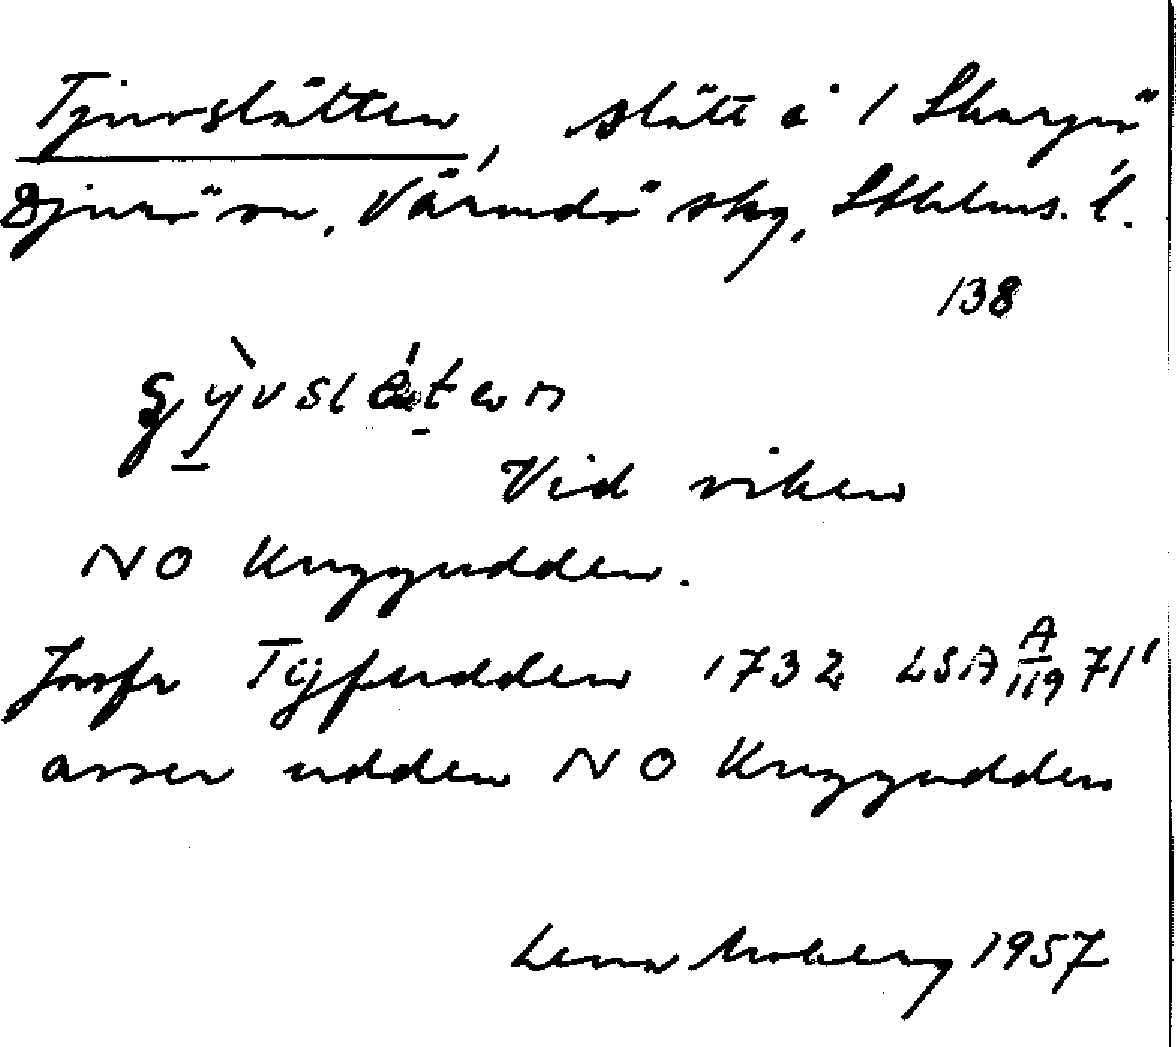 Tjuvslätten, slätt å 1 Skarpö,
Djurö sn, Värmdö skg, Sthlms. l.
138
Vid viken
NO Kuggudden.
Jmfr Tijfudden 1732 LSA A/119 71'
avser udden NO Kuggudden
Lena Moberg 1957